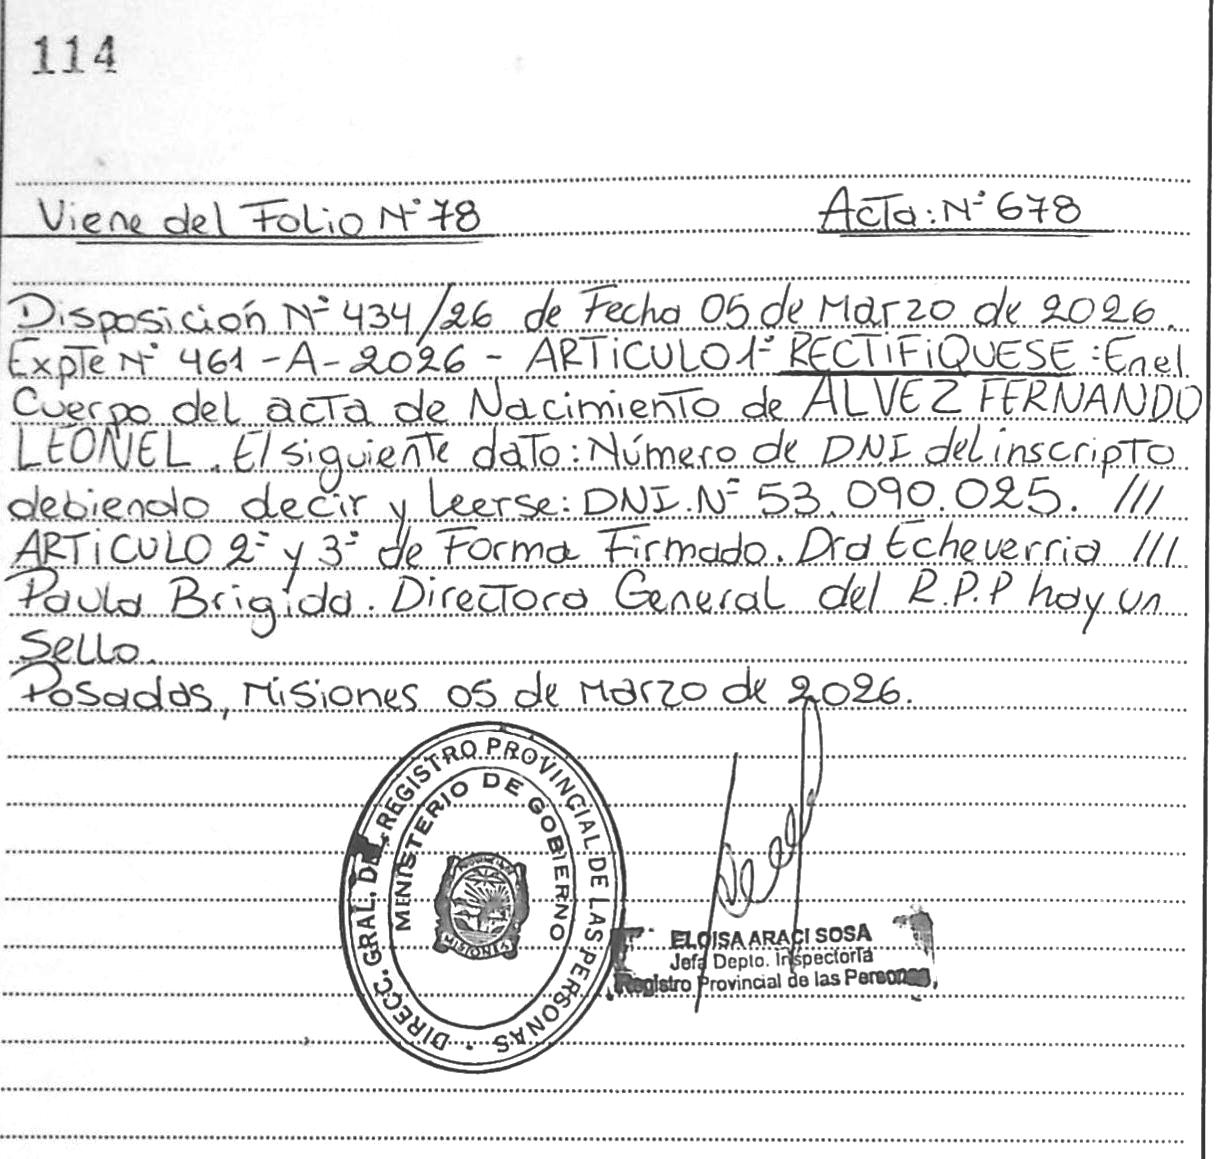 114
Viene del Folio N° 78 Acta: N° 678
Disposición N° 434/26 de Fecha 05 de Marzo de 2026.
Expte N° 461-A-2026 - ARTICULO 1° RECTIFIQUESE: En el
Cuerpo del acta de Nacimiento de ALVEZ FERNANDO
LEONEL. El siguiente dato: Número de DNI del inscripto
debiendo decir y leerse: DNI. N° 53.090.025. ///
ARTICULO 2° y 3° de Forma Firmado. Dra Echeverria ///
Paula Brigida. Directora General del R.P.P hay un
Sello.
Posadas, Misiones 05 de Marzo de 2026.
DIRECC. GRAL. DEL REGISTRO PROVINCIAL DE LAS PERSONAS
MINISTERIO DE GOBIERNO
MISIONES
ELOISA ARACI SOSA
Jefa Depto. Inspectoría
Registro Provincial de las Personas